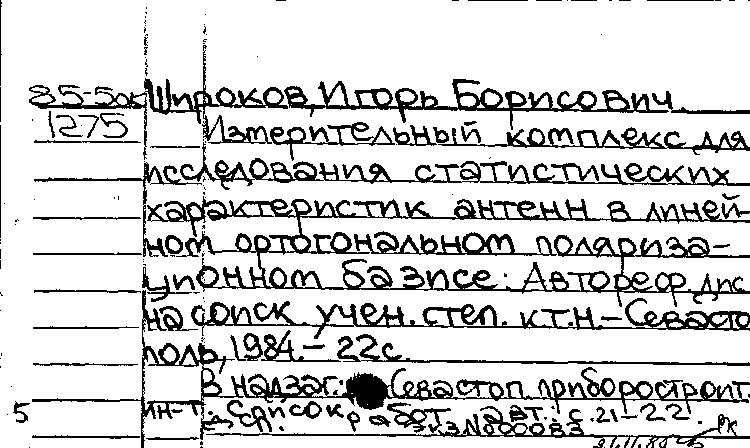 85-5ок Широков, Игорь Борисович.
1275 Измерительный комплекс для
исследования статистических
характеристик антенн в линей-
ном ортогональном поляриза-
ционном базисе: Автореф. дис.
на соиск. учен. степ. к.т.н. - Севасто
поль, 1984. - 22 с.
В надзаг.: Севастоп. приборостроит.
5 ин-т. Список работ авт.: с. 21-22.
экз N000083